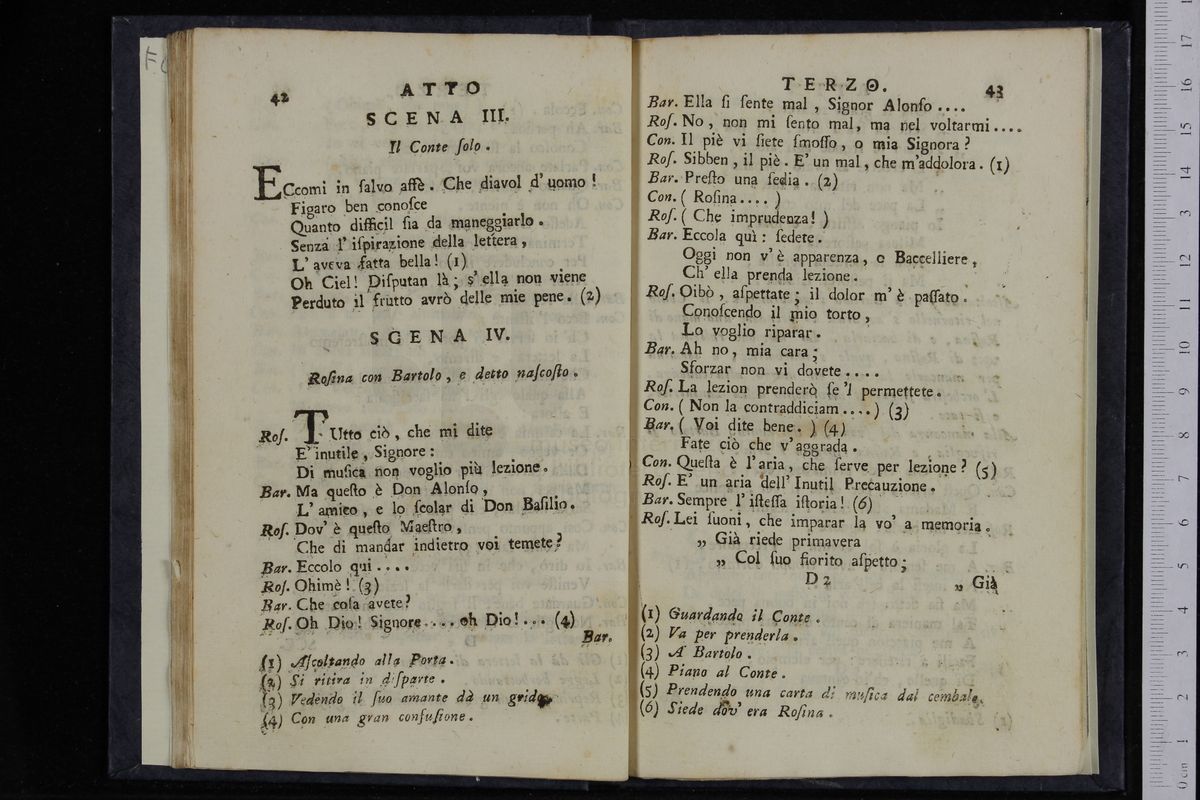 42
ATTO
SCENA III.
Il Conte ſolo.
ECcomi in ſalvo affè. Che diavol d'uomo!
Figaro ben conoſce
Quanto difficil ſia da maneggiarlo.
Senza l'iſpirazione della lettera,
L'aveva fatta bella! (1)
Oh Ciel! Diſputan là; s'ella non viene
Perduto il frutto avrò delle mie pene. (2)
SCENA IV.
Roſina con Bartolo, e detto naſcoſto.
Roſ. TUtto ciò, che mi dite
E' inutile, Signore:
Di muſica non voglio più lezione.
Bar. Ma queſto è Don Alonſo,
L'amico, e lo ſcolar di Don Baſilio.
Roſ. Dov'è queſto Maeſtro,
Che di mandar indietro voi temete?
Bar. Eccolo qui....
Roſ. Ohimè! (3)
Bar. Che coſa avete?
Roſ. Oh Dio! Signore.... oh Dio!... (4)
Bar.
(1) Aſcoltando alla Porta.
(2) Si ritira in diſparte.
(3) Vedendo il ſuo amante dà un grido.
(4) Con una gran confuſione.
TERZO.
43
Bar. Ella ſi ſente mal, Signor Alonſo....
Roſ. No, non mi ſento mal, ma nel voltarmi....
Con. Il piè vi ſiete ſmoſſo, o mia Signora?
Roſ. Sibben, il piè. E' un mal, che m'addolora. (1)
Bar. Preſto una ſedia. (2)
Con. (Roſina....)
Roſ. (Che imprudenza!)
Bar. Eccola quì: ſedete.
Oggi non v'è apparenza, o Baccelliere,
Ch'ella prenda lezione.
Roſ. Oibò, aſpettate; il dolor m'è paſſato.
Conoſcendo il mio torto,
Lo voglio riparar.
Bar. Ah no, mia cara;
Sforzar non vi dovete....
Roſ. La lezion prenderò ſe'l permettete.
Con. (Non la contraddiciam....) (3)
Bar. (Voi dite bene.) (4)
Fate ciò che v'aggrada.
Con. Queſta è l'aria, che ſerve per lezione? (5)
Roſ. E' un aria dell'Inutil Precauzione.
Bar. Sempre l'iſteſſa iſtoria! (6)
Roſ. Lei ſuoni, che imparar la vo' a memoria.
„ Già riede primavera
„ Col ſuo fiorito aſpetto;
D 2
„ Già
(1) Guardando il Conte.
(2) Va per prenderla.
(3) A Bartolo.
(4) Piano al Conte.
(5) Prendendo una carta di muſica dal cembalo.
(6) Siede dov'era Roſina.
0 cm 1 2 3 4 5 6 7 8 9 10 11 12 13 14 15 16 17